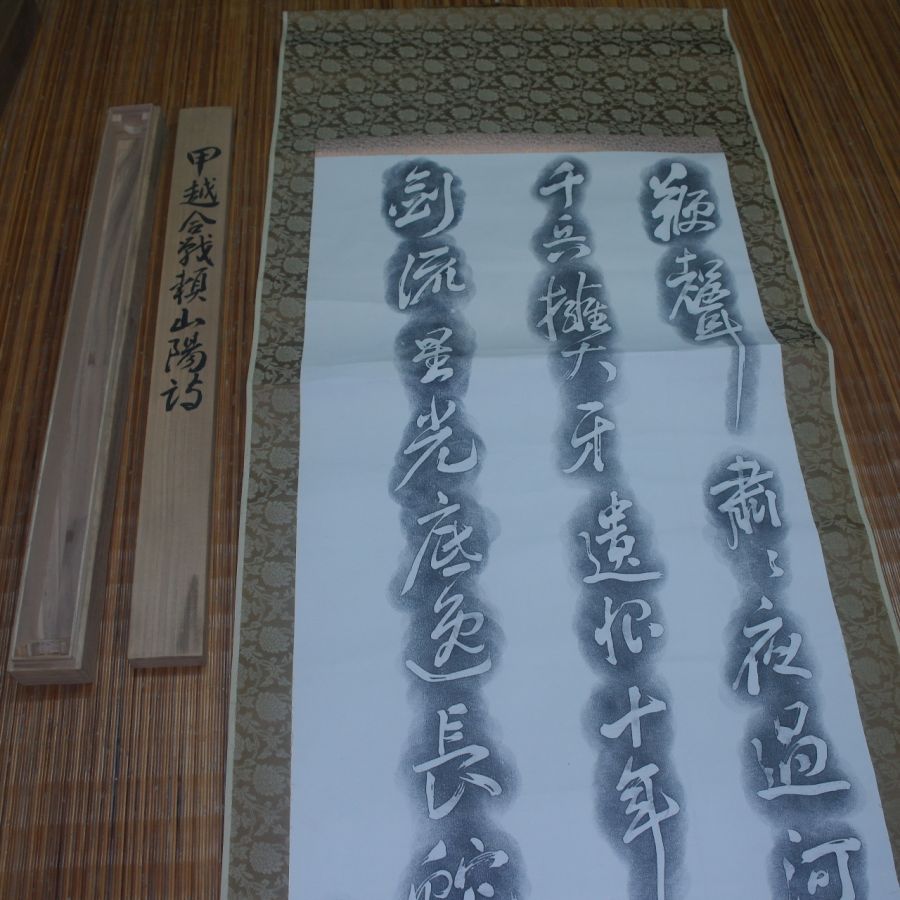 鞭聲肅々夜過河
千兵擁大牙遺恨十年
剣流星光底逸長蛇
甲越合戦頼山陽詩